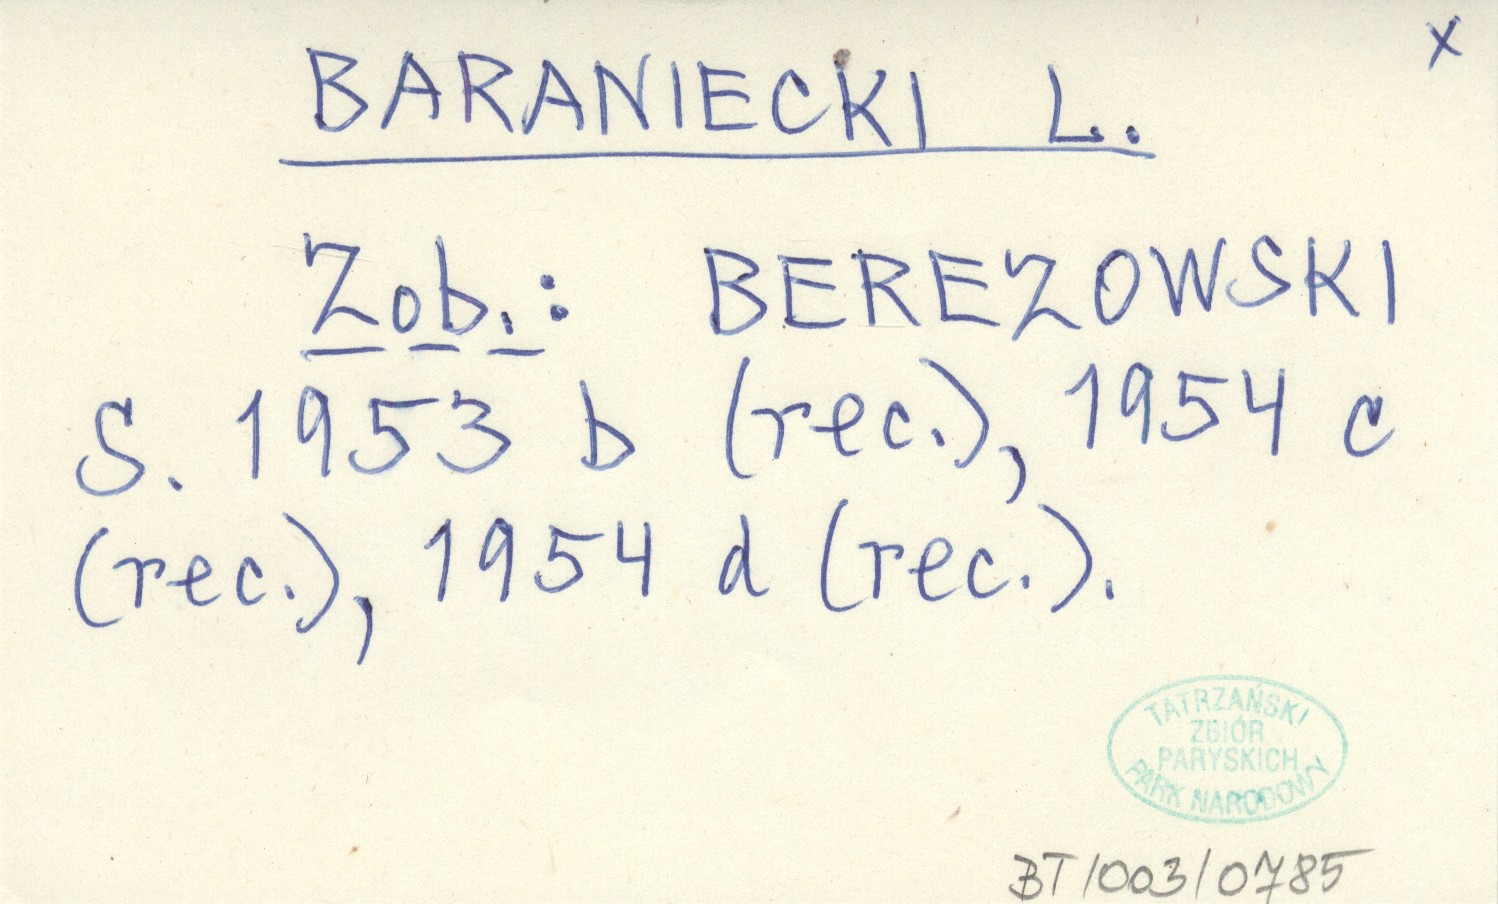 x
BARANIECKI L.
Zob.: BEREZOWSKI
S. 1953 b (rec.), 1954 c
(rec.), 1954 d (rec.).
TATRZAŃSKI
ZBIÓR
PARYSKICH
PARK NARODOWY
BT/003/0785